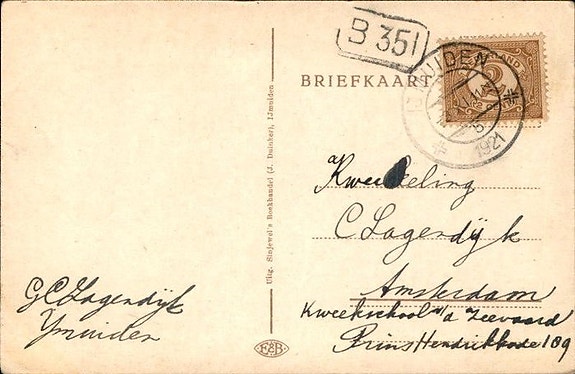 B 351
BRIEFKAART
IJMUIDEN
1921
Uitg. Sinjewel's Boekhandel (J. Duinker), IJmuiden.
ad
Kweekeling
C Lagendijk
Amsterdam
Kweekschool v/d Zeevaard
Prins Hendrikkade 189
G C Lagendijk
Ymuiden
E&B